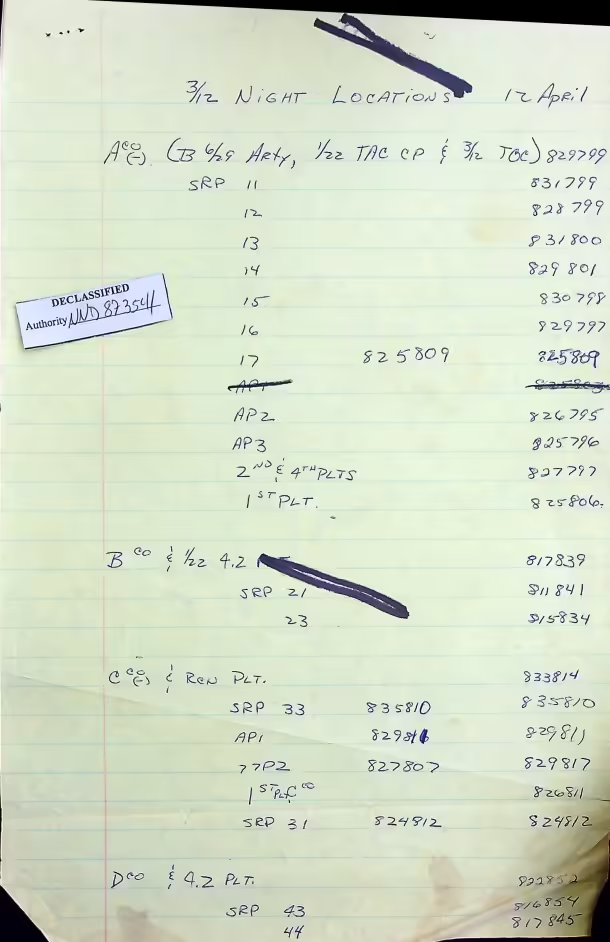 3/12 NIGHT LOCATIONS 12 April
A CO (-) (B 6/29 Arty, 1/22 TAC CP & 3/12 TOC) 829799
SRP 11 831799
12 828799
13 831800
14 829801
DECLASSIFIED
Authority NND 873541
15 830798
16 829797
17 825809 825809
AP1
AP2 826795
AP3 825796
2ND & 4TH PLTS 827797
1ST PLT. 825806.
B CO & 1/22 4.2 817839
SRP 21 811841
23 815834
C CO (-) & RCN PLT. 833814
SRP 33 835810 835810
AP1 829811 829811
77P2 827807 829817
1ST PLT C CO 826811
SRP 31 824812 824812
D CO & 4.2 PLT. 822852
SRP 43 816854
44 817845